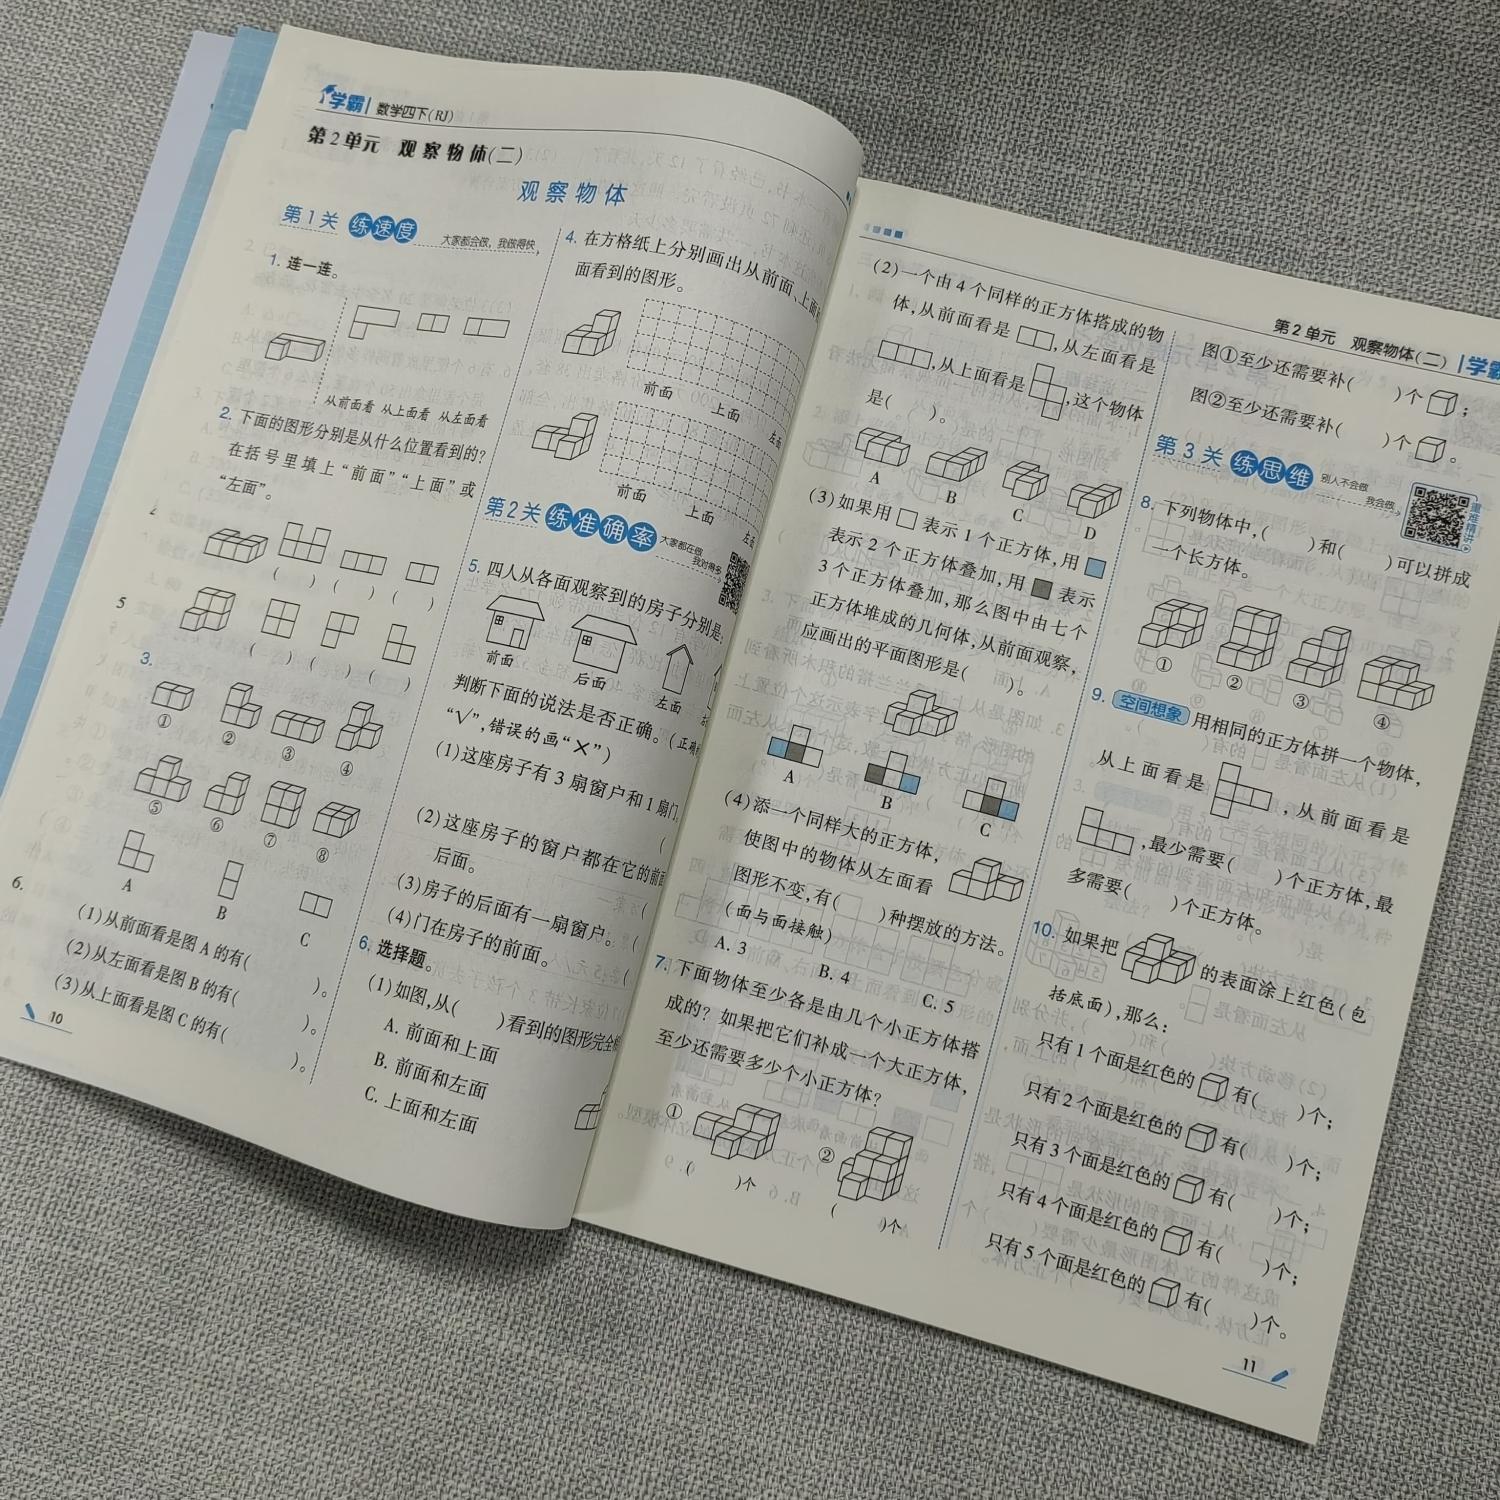 学霸 数学四下(RJ)
第2单元 观察物体(二)
观察物体
第1关 练速度 大家都会做，我做得快
1. 连一连。
从前面看 从上面看 从左面看
2. 下面的图形分别是从什么位置看到的？
在括号里填上“前面”“上面”或
“左面”。
( ) ( ) ( )
( ) ( ) ( )
3.
① ② ③ ④
⑤ ⑥ ⑦ ⑧
A B C
(1)从前面看是图A的有( )。
(2)从左面看是图B的有( )。
(3)从上面看是图C的有( )。
10
4. 在方格纸上分别画出从前面、上面
面看到的图形。
前面 上面 左面
前面 上面 左面
第2关 练准确率 大家都在做
5. 四人从各面观察到的房子分别是
前面 后面 左面
判断下面的说法是否正确。(正确
“√”，错误的画“×”)
(1)这座房子有3扇窗户和1扇门
(
(2)这座房子的窗户都在它的前
后面。 (
(3)房子的后面有一扇窗户。 (
(4)门在房子的前面。 (
6. 选择题。
(1)如图，从( )看到的图形完全
A. 前面和上面
B. 前面和左面
C. 上面和左面
第2单元 观察物体(二) 学霸
(2)一个由4个同样的正方体搭成的物
体，从前面看是 ，从左面看是
，从上面看是 ，这个物体
是( )。
A B C D
(3)如果用 表示1个正方体，用
表示2个正方体叠加，用 表示
3个正方体叠加，那么图中由七个
正方体堆成的几何体，从前面观察，
应画出的平面图形是( )。
A B C
(4)添一个同样大的正方体，
使图中的物体从左面看
图形不变，有( )种摆放的方法。
(面与面接触)
A. 3 B. 4 C. 5
7. 下面物体至少各是由几个小正方体搭
成的？如果把它们补成一个大正方体，
至少还需要多少个小正方体？
① ②
( )个 ( )个
图①至少还需要补( )个 ；
图②至少还需要补( )个 。
第3关 练思维 别人不会做 我会做
重难精讲
8. 下列物体中，( )和( )可以拼成
一个长方体。
① ② ③ ④
9. 空间想象 用相同的正方体拼一个物体，
从上面看是 ，从前面看是
，最少需要( )个正方体，最
多需要( )个正方体。
10. 如果把 的表面涂上红色(包
括底面)，那么：
只有1个面是红色的 有( )个；
只有2个面是红色的 有( )个；
只有3个面是红色的 有( )个；
只有4个面是红色的 有( )个；
只有5个面是红色的 有( )个。
11